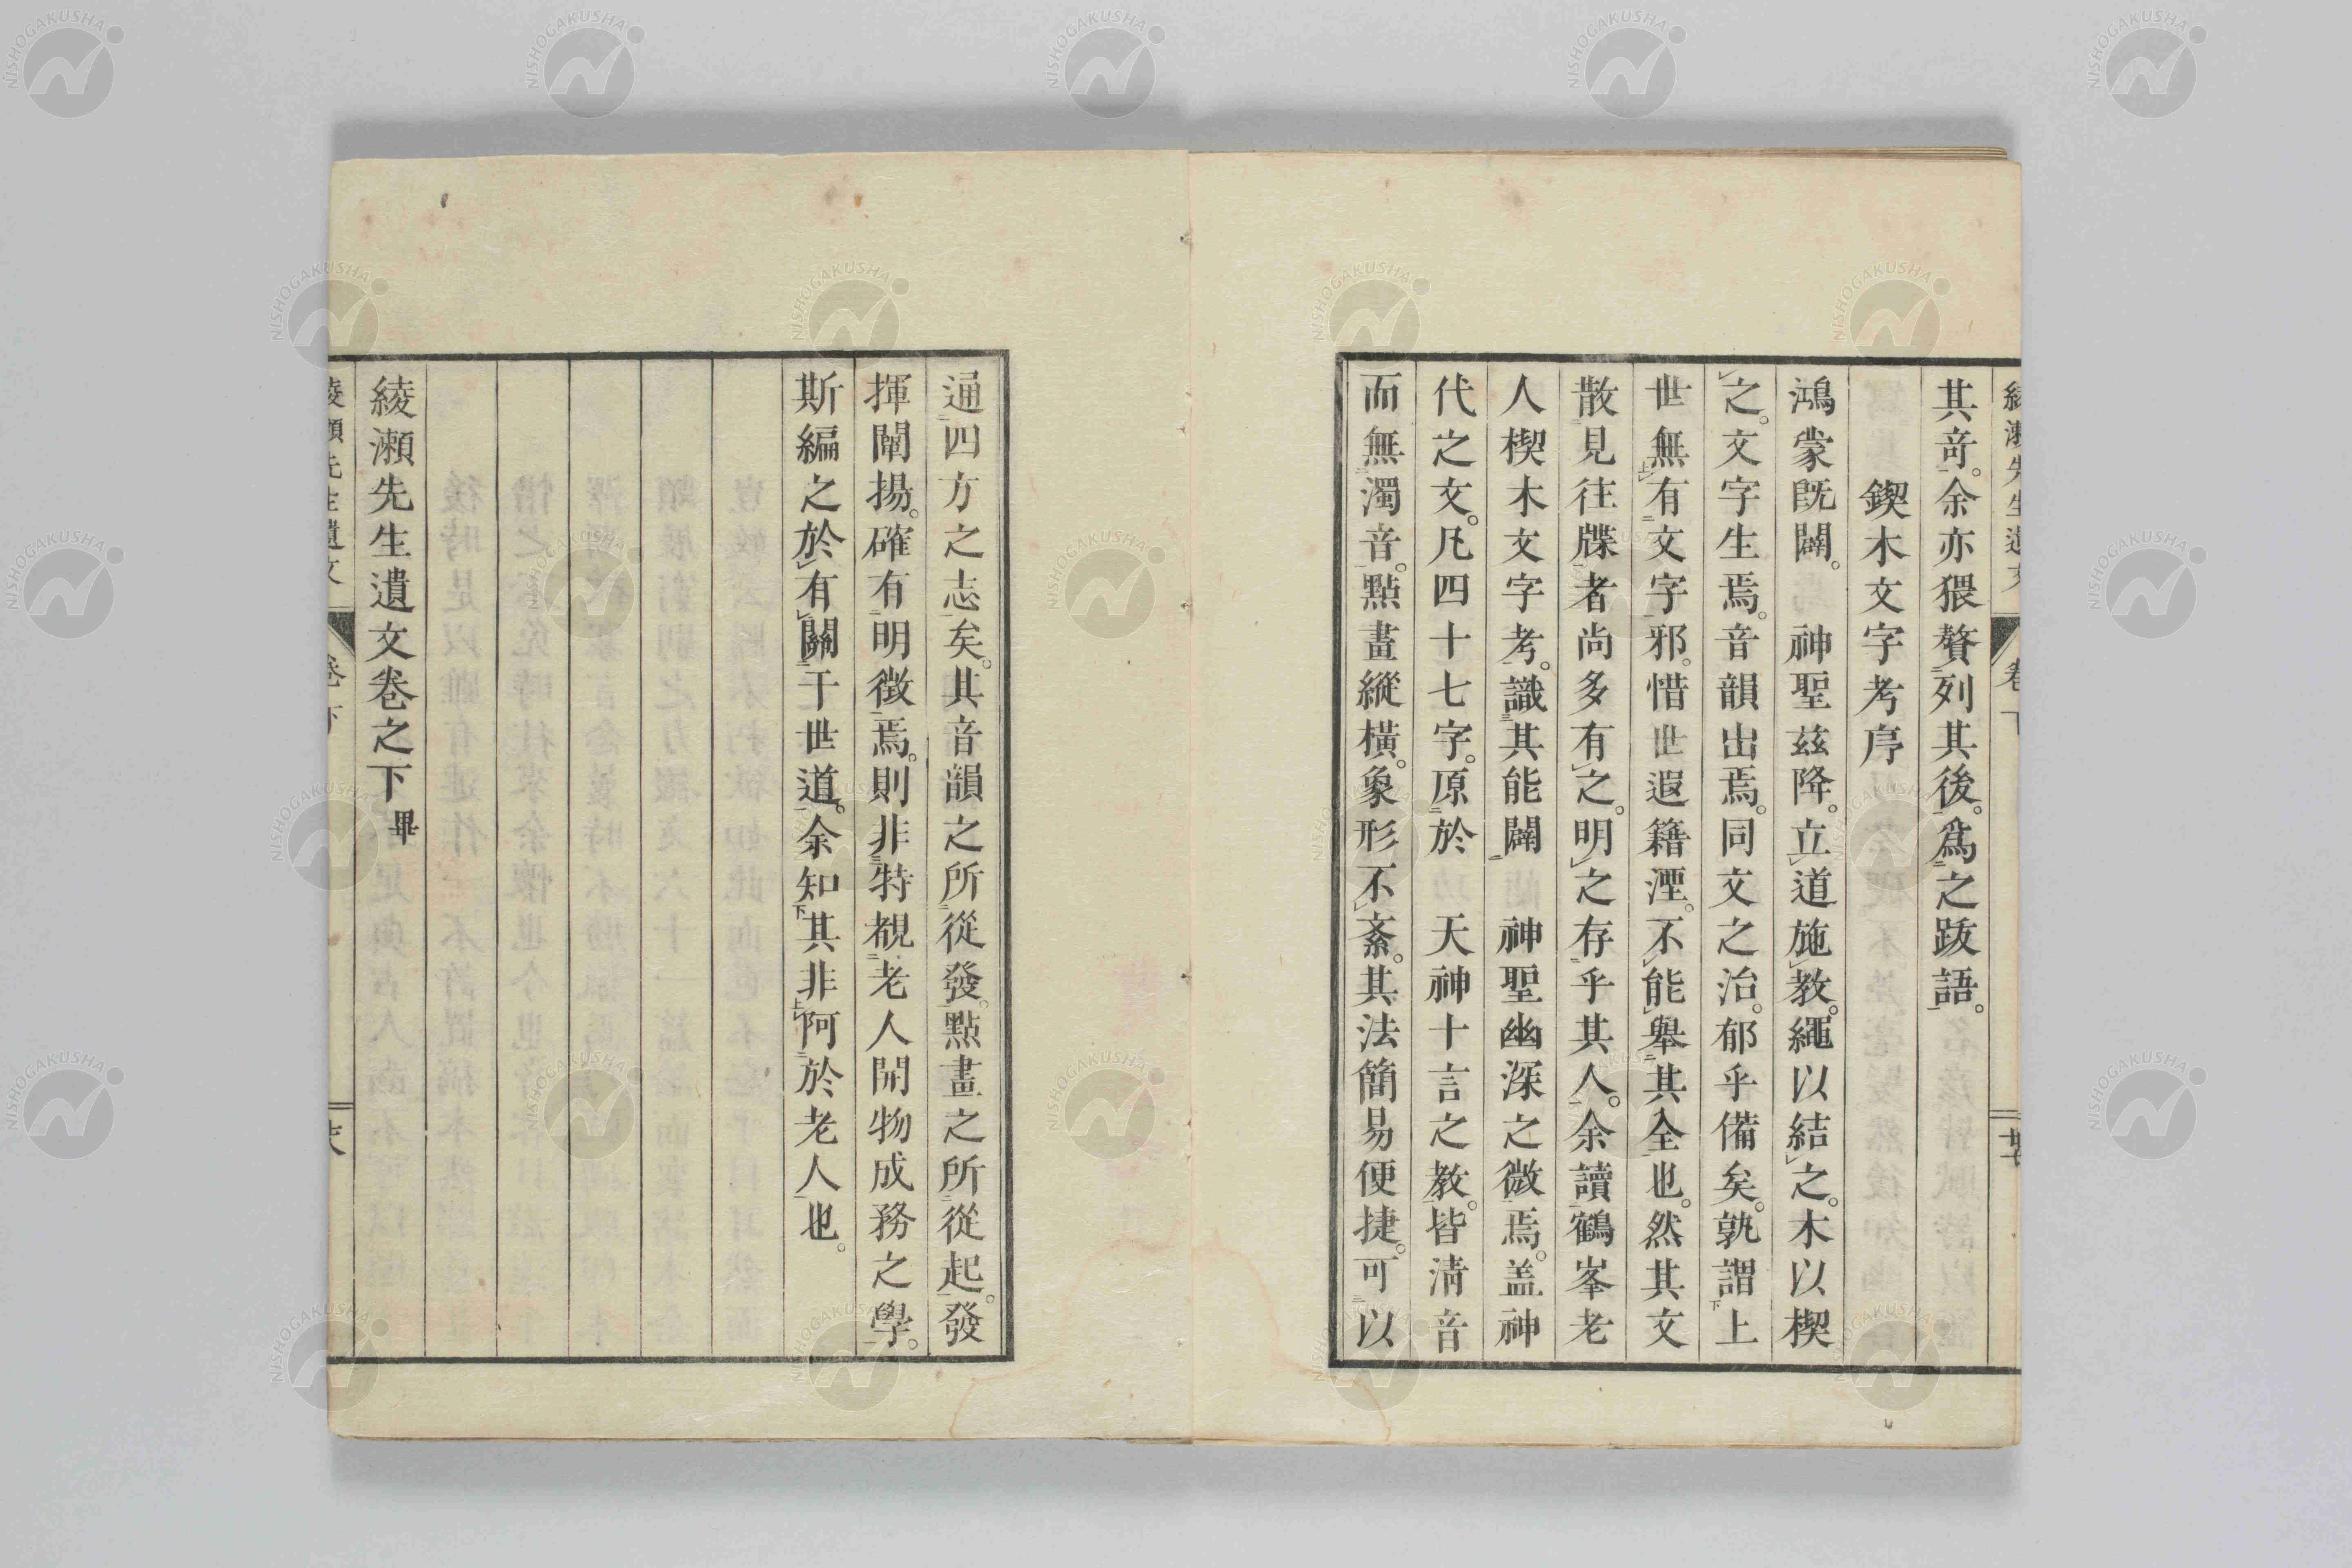 其竒。余亦猥贅列其後。爲之跋語。
鍥木文字考序
鴻蒙既闢。神聖玆降。立道施教。繩以結之。木以楔
之。文字生焉。音韻出焉。同文之治。郁乎備矣。孰謂上
世無有文字邪。惜世遐籍湮。不能擧其全也。然其文
散見往牒者尚多有之。明之存乎其人。余讀鶴峯老
人楔木文字考。識其能闢神聖幽深之微焉。盖神
代之文。凡四十七字。原於天神十言之教。皆淸音
而無濁音。點畫縱横。象形不紊。其法簡易便捷。可以
通四方之志矣。其音韻之所從發。點畫之所從起。發
揮闡揚。確有明徵焉。則非特覩老人開物成務之學。
斯編之於有關于世道。余知其非阿於老人也。
綾瀬先生遺文卷之下畢
綾瀬先生遺文 卷下
NISHOGAKUSHA